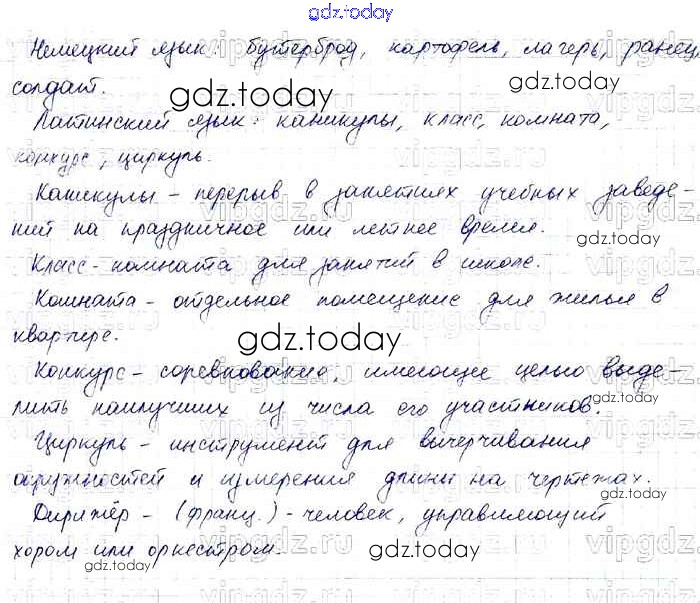 gdz.today
Немецкий язык: бутерброд, картофель, лагерь, ранец,
солдат.
gdz.today
gdz.today
Латинский язык: каникулы, класс, комната,
конкурс, циркуль.
Каникулы - перерыв в занятиях учебных заведе-
ний на праздничное или летнее время.
gdz.today
Класс - комната для занятий в школе.
Комната - отдельное помещение для жилья в
квартире.
gdz.today
Конкурс - соревнование, имеющее целью выде-
лить наилучших из числа его участников.
Циркуль - инструмент для вычерчивания
окружностей и измерения длины на чертежах.
gdz.today
Дирижёр - (франц.) - человек, управляющий
хором или оркестром.
gdz.today
gdz.today
vipgdz.ru